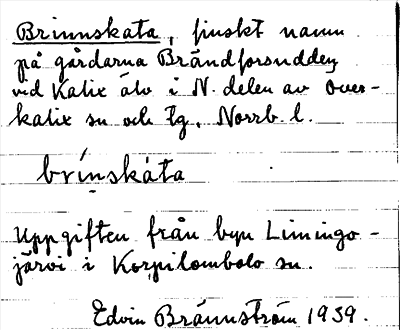 Brinnskata, finskt namn
på gårdarna Brändforsudden
vid Kalix älv i N. delen av Över-
kalix sn och tg, Norrb. l.
brínskàta
Uppgiften från byn Limingo-
järvi i Korpilombolo sn.
Edvin Brännström 1939.